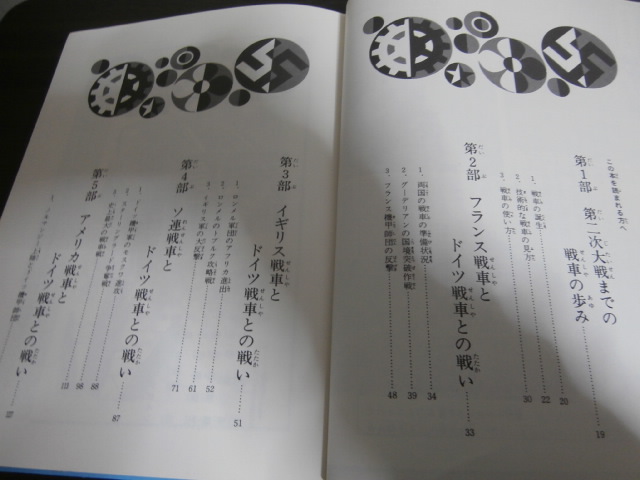 この本を読まれる方へ
第1部 第二次大戦までの
戦車の歩み……19
1、戦車の誕生……20
2、技術的な戦車の見方……22
3、戦車の使い方……30
第2部 フランス戦車と
ドイツ戦車との戦い……33
1、両国の戦車の準備状況……34
2、グーデリアンの国境突破作戦……39
3、フランス機甲師団の反撃……48
第3部 イギリス戦車と
ドイツ戦車との戦い……51
1、ロンメル軍団のアフリカ進出……52
2、ロンメルのトブルク攻略戦……61
3、イギリス軍の大反撃……71
第4部 ソ連戦車と
ドイツ戦車との戦い……87
88
98
111
第5部 アメリカ戦車と
ドイツ戦車との戦い